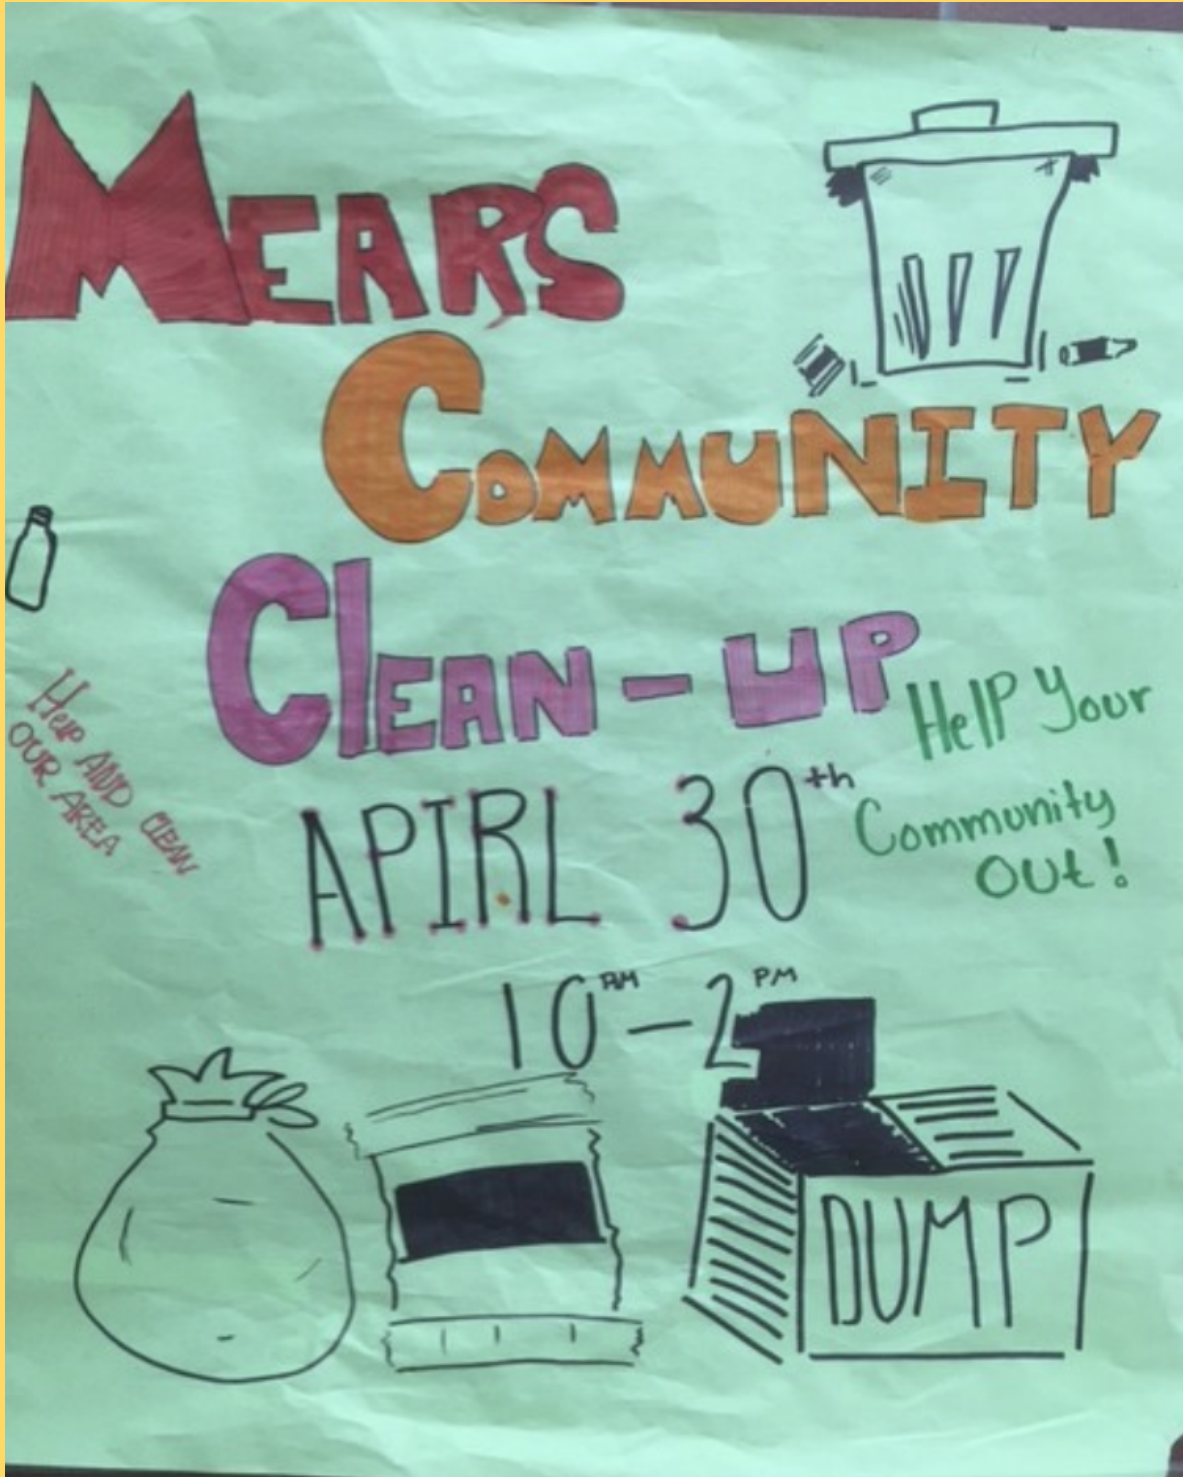 MEARS
COMMUNITY
CLEAN-UP
HelP Your
Community
OUt!
Help AND CLEAN
OUR AREA
APIRL 30th
10AM-2PM
DUMP